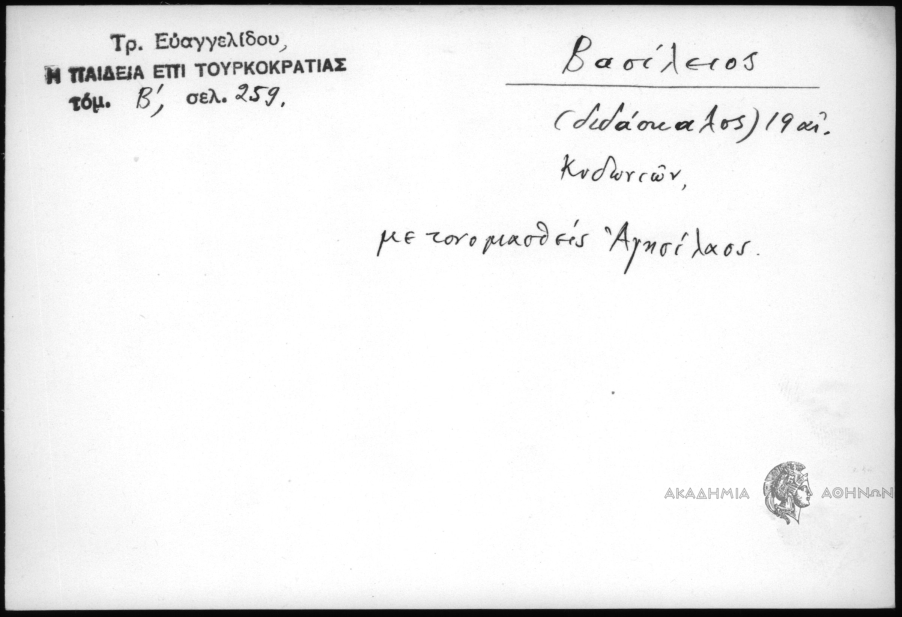 Τρ. Εὐαγγελίδου,
Η ΠΑΙΔΕΙΑ ΕΠΙ ΤΟΥΡΚΟΚΡΑΤΙΑΣ
τόμ. Β', σελ. 259.
Βασίλειος
(διδάσκαλος) 19 αἰ.
Κυδωνιῶν,
μετονομασθείς Ἀγησίλαος.
ΑΚΑΔΗΜΙΑ ΑΘΗΝΩΝ